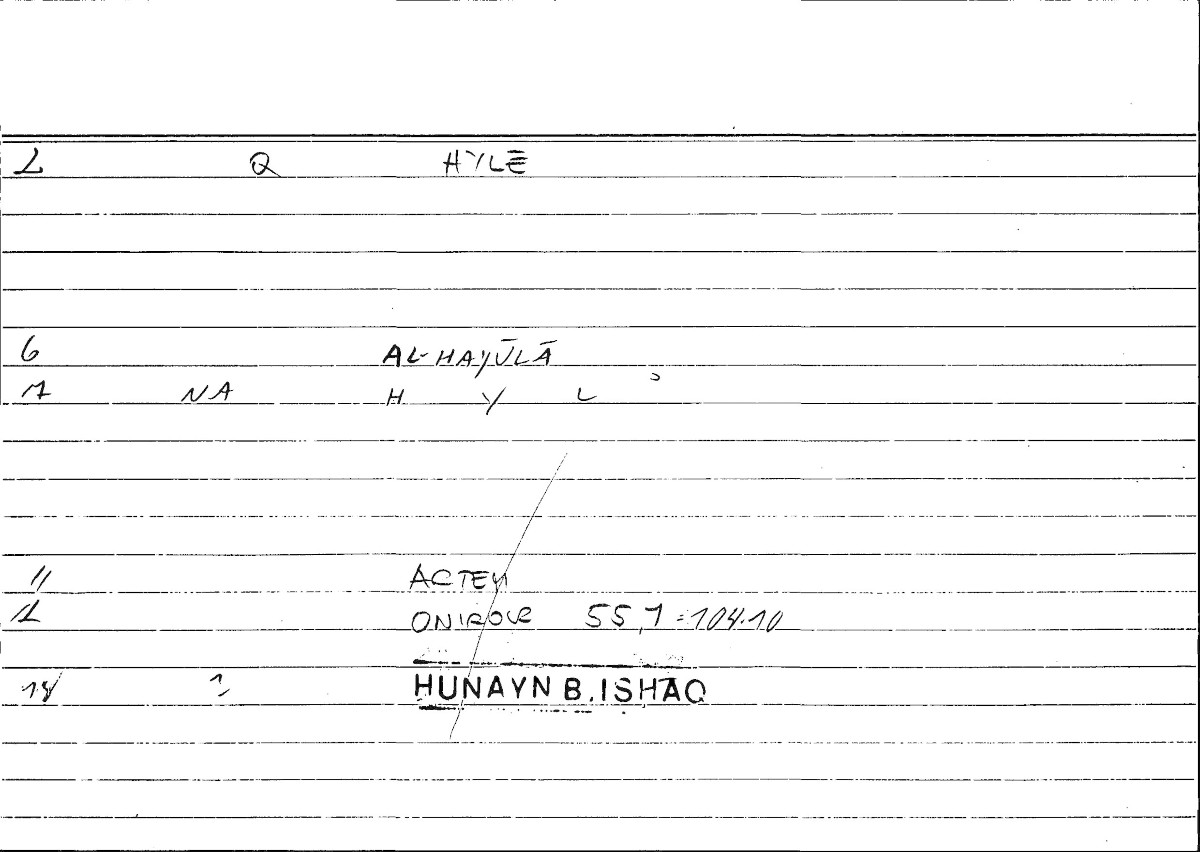 1 Q HYLĒ
6 AL-HAYŪLĀ
7 NA H Y L ʾ
11 ACTEM
12 ONIROCR 55,1 = 104.10
18 1 HUNAYN B. ISHAQ